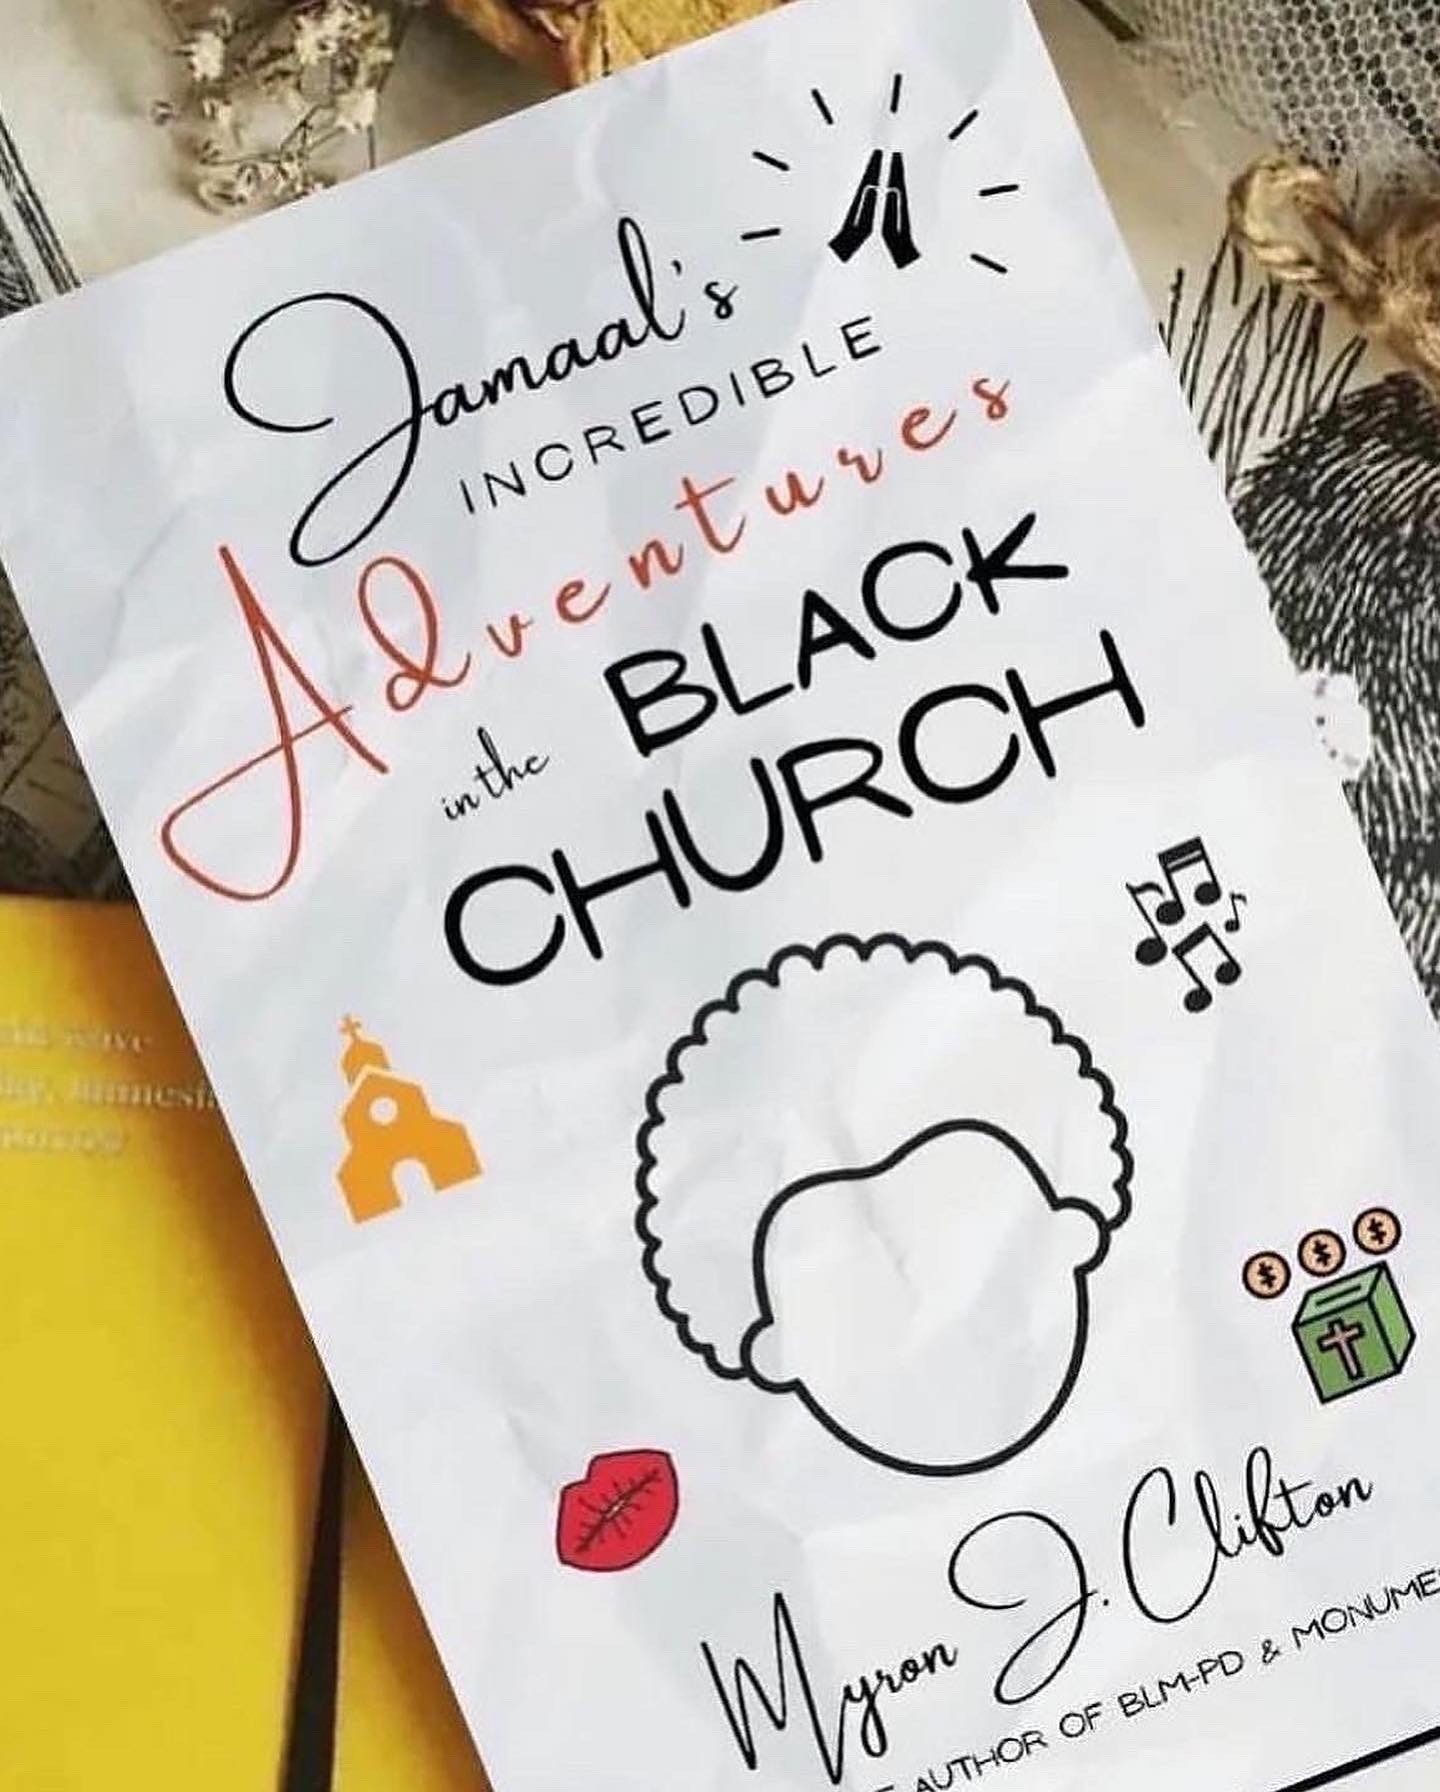 Jamaal's
INCREDIBLE
Adventures
in the BLACK
CHURCH
$ $ $
Myron J. Clifton
AUTHOR OF BLM-PD &